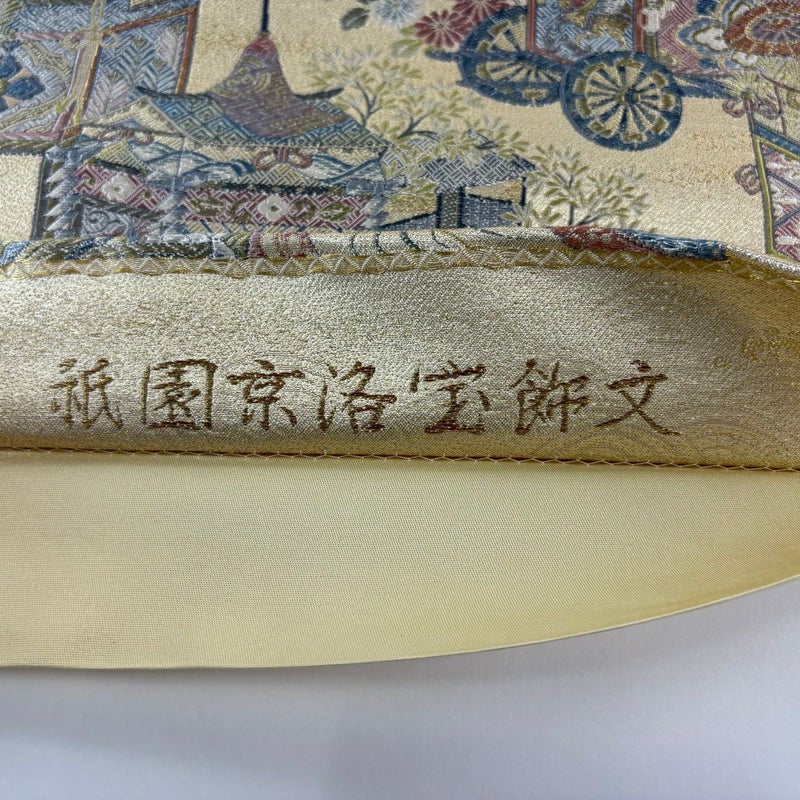 祇園京洛宝飾文